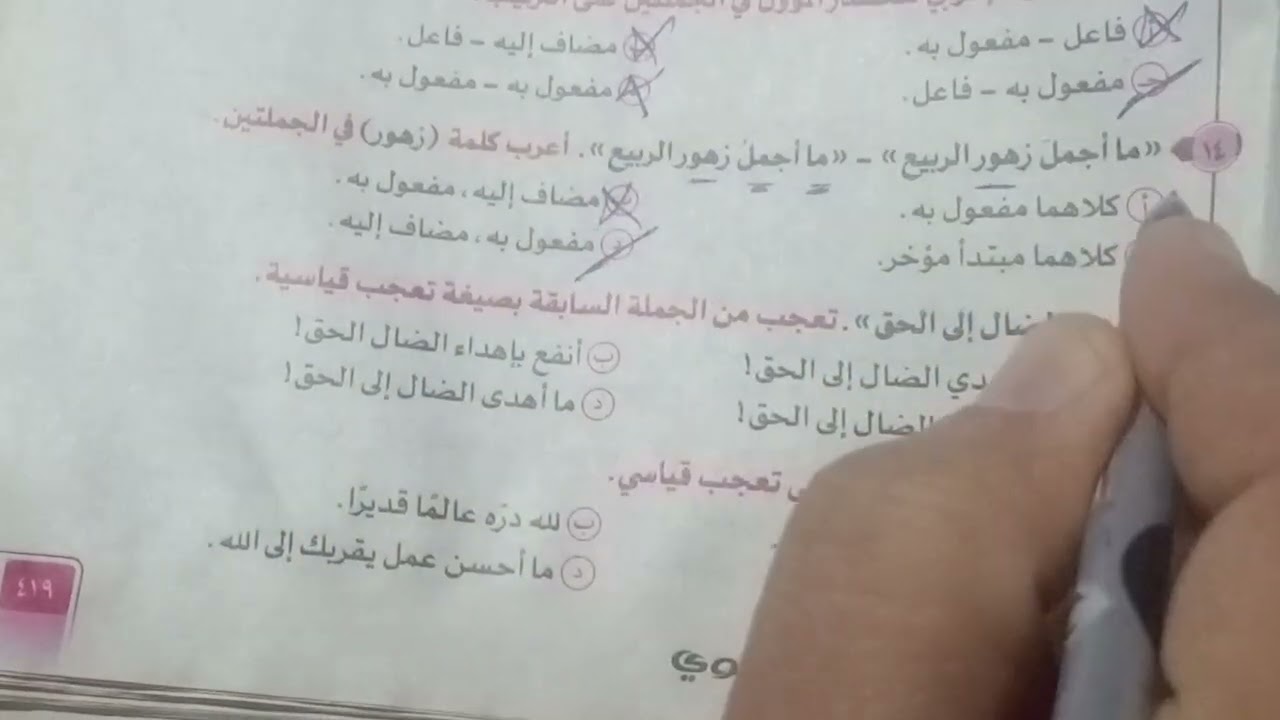 المؤول في الجملتين على الترتيب
أ فاعل - مفعول به.
ب مضاف إليه - فاعل.
جـ مفعول به - فاعل.
د مفعول به - مفعول به.
١٤ «ما أجملَ زهور الربيع» - «ما أجملُ زهور الربيع». أعرب كلمة (زهور) في الجملتين.
أ كلاهما مفعول به.
ب مضاف إليه، مفعول به.
كلاهما مبتدأ مؤخر.
د مفعول به، مضاف إليه.
الضال إلى الحق». تعجب من الجملة السابقة بصيغة تعجب قياسية.
الضال إلى الحق!
ب أنفع بإهداء الضال الحق!
الضال إلى الحق!
د ما أهدى الضال إلى الحق!
تعجب قياسي.
ب لله درّه عالمًا قديرًا.
د ما أحسن عمل يقربك إلى الله.
٤١٩